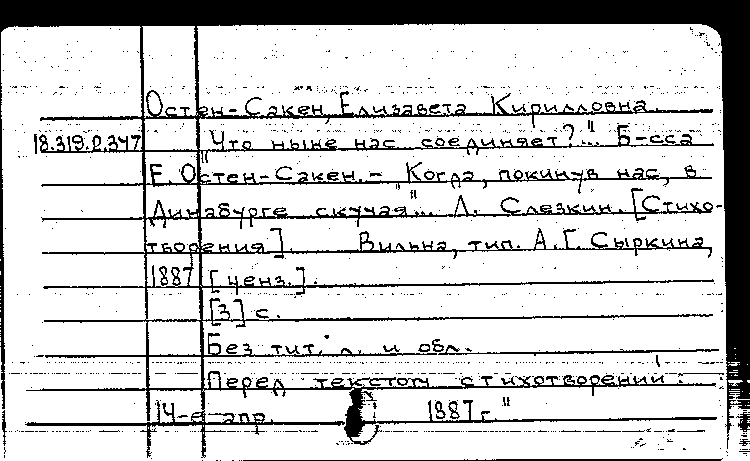 Остен-Сакен, Елизавета Кирилловна.
18.319.0.347 "Что ныне нас соединяет?"... Б-сса
Е. Остен-Сакен. - "Когда, покинув нас, в
Динабурге скучая"... Л. Слезкин. [Стихо-
творения]. Вильна, тип. А.Г. Сыркина,
1887 [ценз.].
[3] с.
Без тит. л. и обл.
Перед текстом стихотворений:
14-е апр. 1887 г."